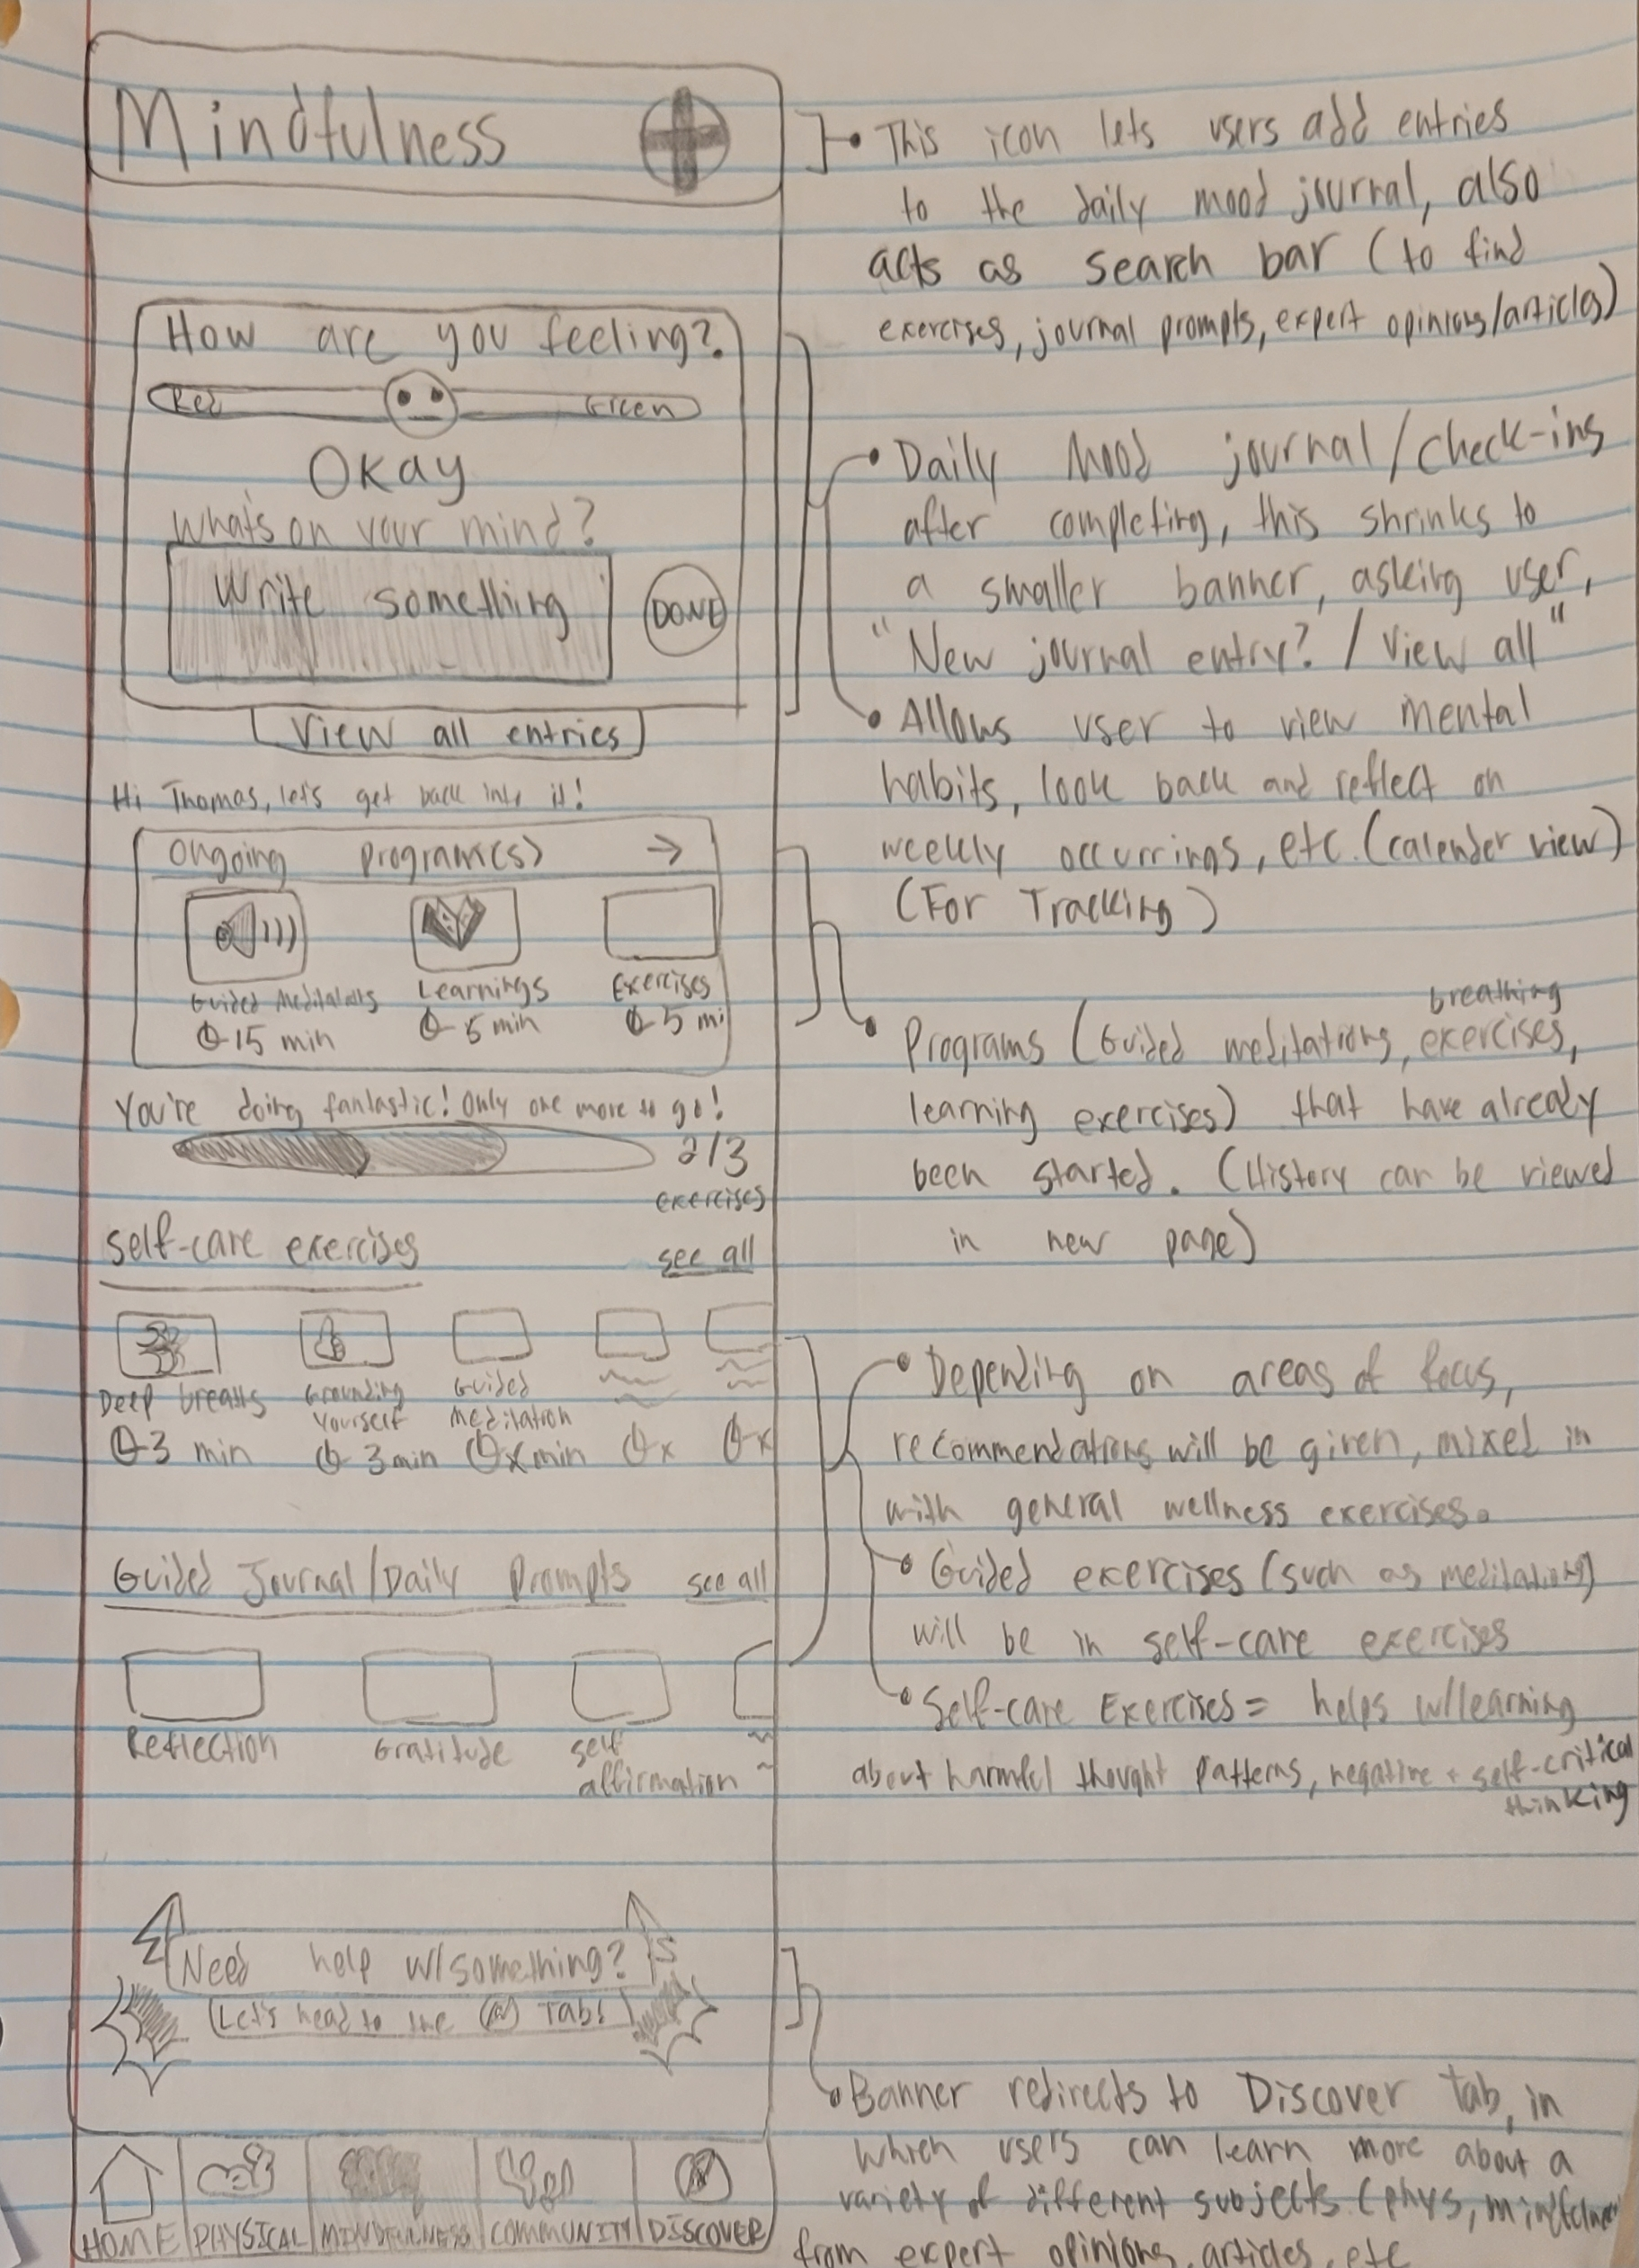 Mindfulness
This icon lets users add entries
to the daily mood journal, also
acts as search bar (to find
exercises, journal prompts, expert opinions/articles)
How are you feeling?
Red
Green
Okay
What's on your mind?
Write something
DONE
View all entries
Daily Mood journal/check-ins
after completing, this shrinks to
a smaller banner, asking user,
"New journal entry? / View all"
Allows user to view mental
habits, look back and reflect on
weekly occurrings, etc. (calender view)
(For Tracking)
Hi Thomas, let's get back into it!
Ongoing program(s) →
Guided Meditations
15 min
Learnings
5 min
Exercises
5 mi
You're doing fantastic! Only one more to go!
2/3
exercises
breathing
Programs (Guided meditations, exercises,
learning exercises) that have already
been started. (History can be viewed
in new page)
self-care exercises
see all
Deep breaths
3 min
Grounding
yourself
3 min
Guided
meditation
x min
x
x
Guided Journal/Daily Prompts
see all
Reflection
Gratitude
self
affirmation
Depending on areas of focus,
recommendations will be given, mixed in
with general wellness exercises.
Guided exercises (such as meditations)
will be in self-care exercises
Self-care Exercises = helps w/learning
about harmful thought patterns, negative + self-critical
thinking
Need help w/something?
Let's head to the Tab!
Banner redirects to Discover tab, in
which users can learn more about a
variety of different subjects (phys, mindfulness
from expert opinions, articles, etc
HOME
PHYSICAL
MINDFULNESS
COMMUNITY
DISCOVER